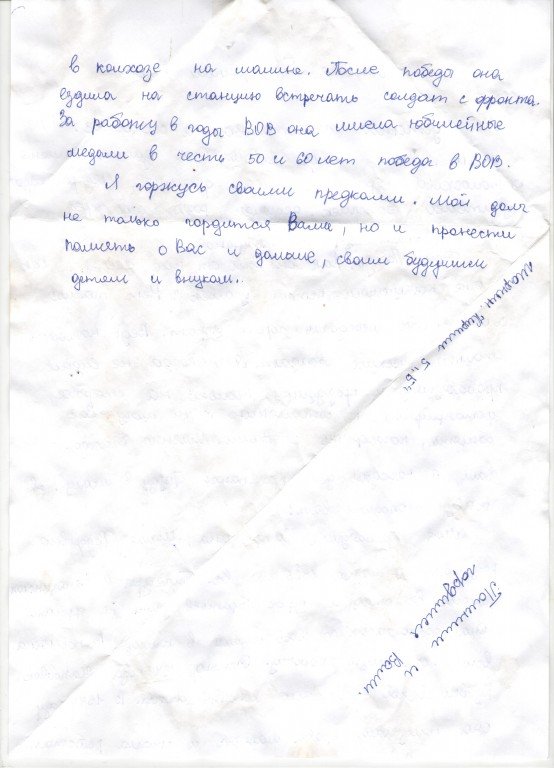 в колхозе на машине. После победы она
ездила на станцию встречать солдат с фронта.
За работу в годы ВОВ она имела юбилейные
медали в честь 50 и 60 лет победы в ВОВ.
Я горжусь своими предками. Мой долг
не только гордится Вами, но и пронести
память о Вас и дальше, своим будущим
детям и внукам.
Кирилл 5 "Б"
Помним и
гордимся Вами.